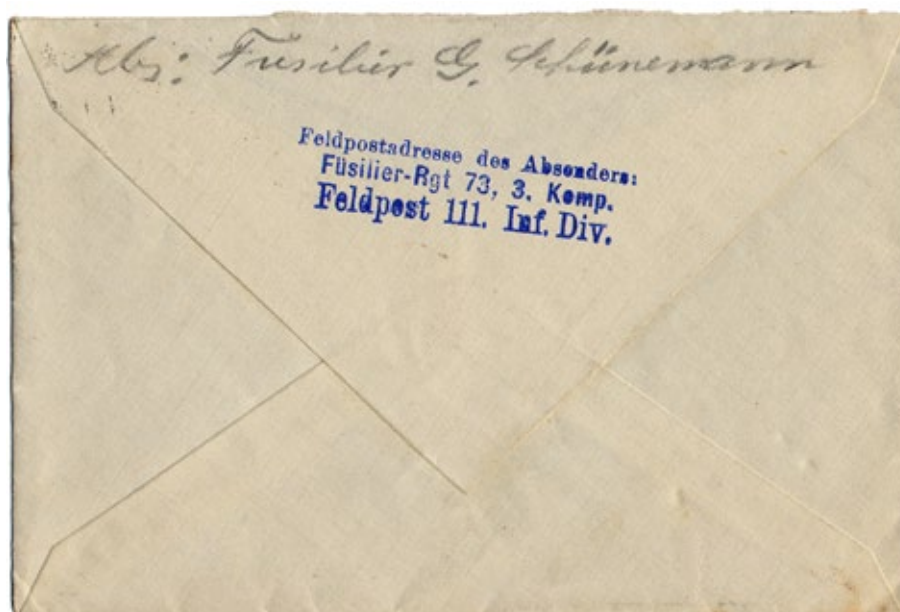 Abs: Fusilier G. Schünemann
Feldpostadresse des Absenders:
Füsilier-Rgt 73, 3. Komp.
Feldpost 111. Inf. Div.